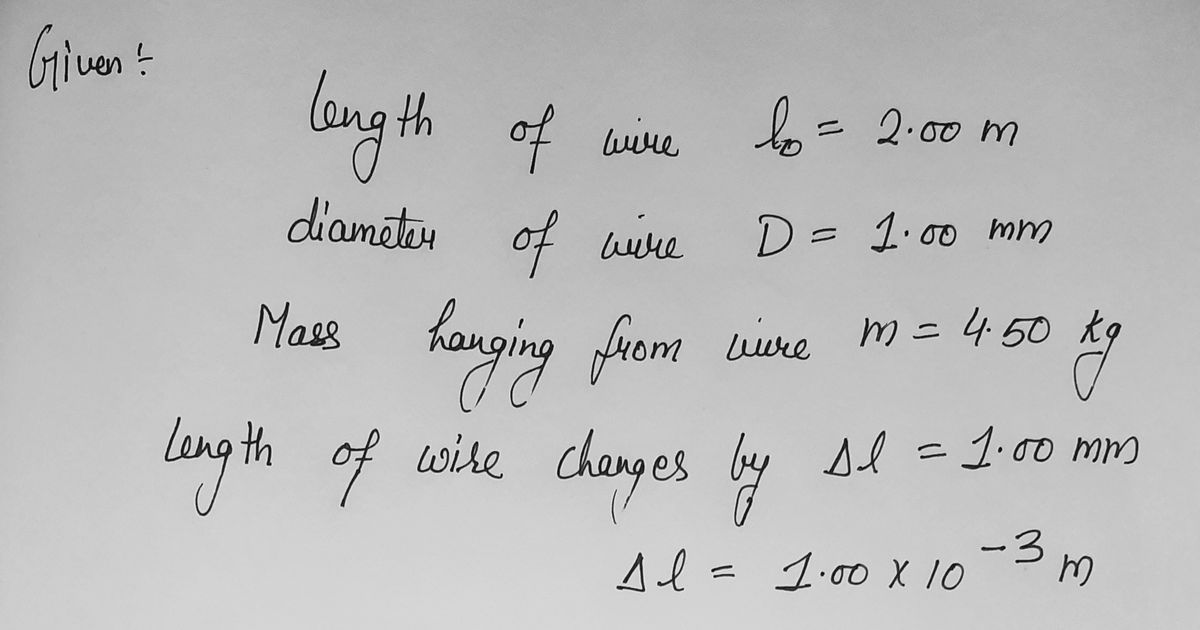 Given :-
length of wire l₀ = 2.00 m
diameter of wire D = 1.00 mm
Mass hanging from wire m = 4.50 kg
length of wire changes by Δl = 1.00 mm
Δl = 1.00 x 10⁻³ m